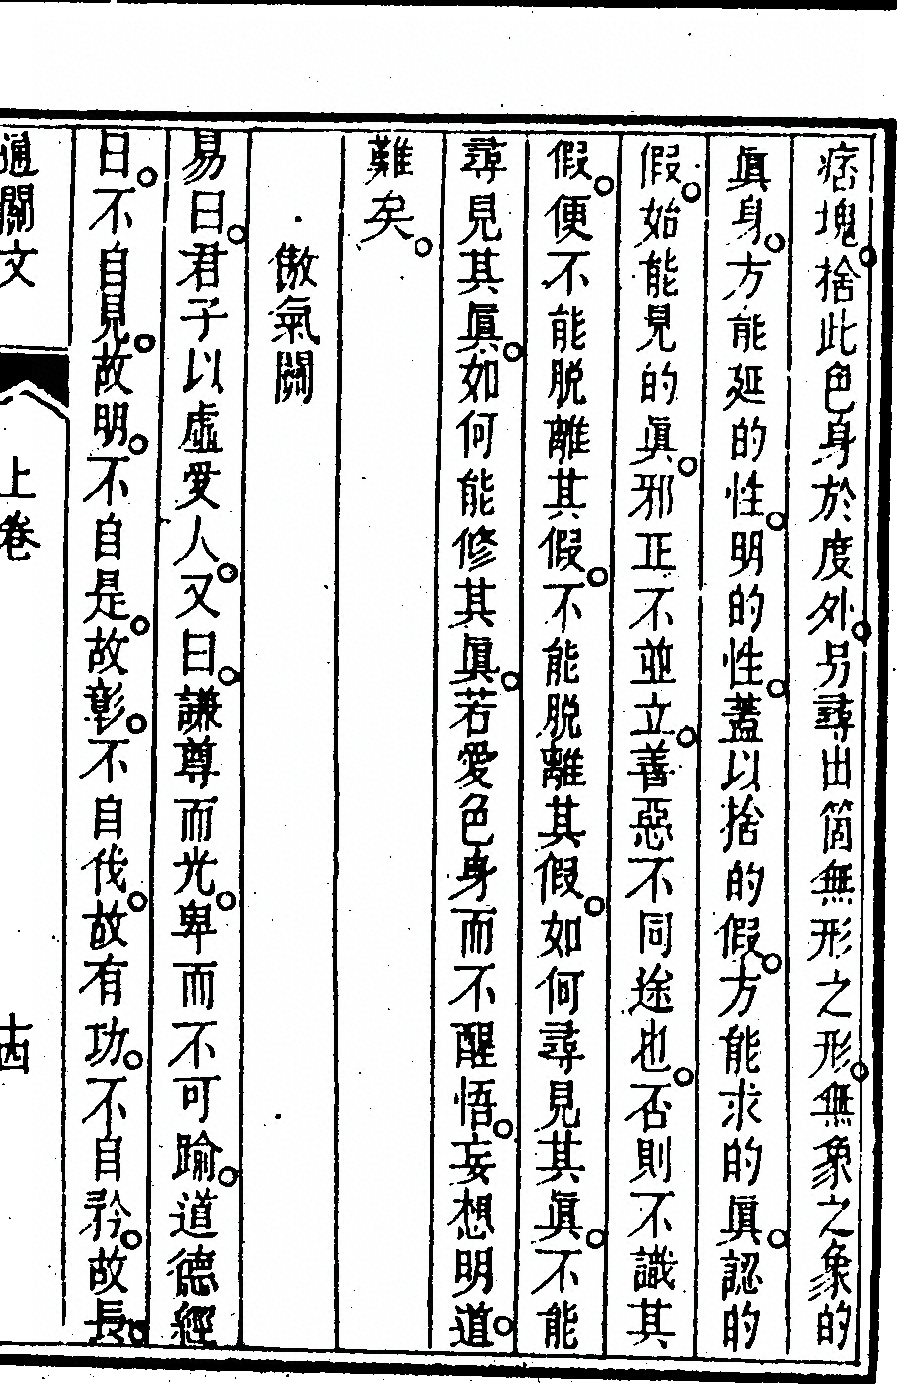 痞塊。捨此色身於度外。另尋出箇無形之形。無象之象的
眞身。方能延的性。明的性。蓋以捨的假。方能求的眞。認的
假。始能見的眞。邪正不並立。善惡不同途也。否則不識其
假。便不能脫離其假。不能脫離其假。如何尋見其眞。不能
尋見其眞。如何能修其眞。若愛色身而不醒悟。妄想明道。
難矣。
傲氣關
易曰。君子以虛受人。又曰。謙尊而光。卑而不可踰。道德經
曰。不自見。故明。不自是。故彰。不自伐。故有功。不自矜。故長。
通關文 上卷 十四